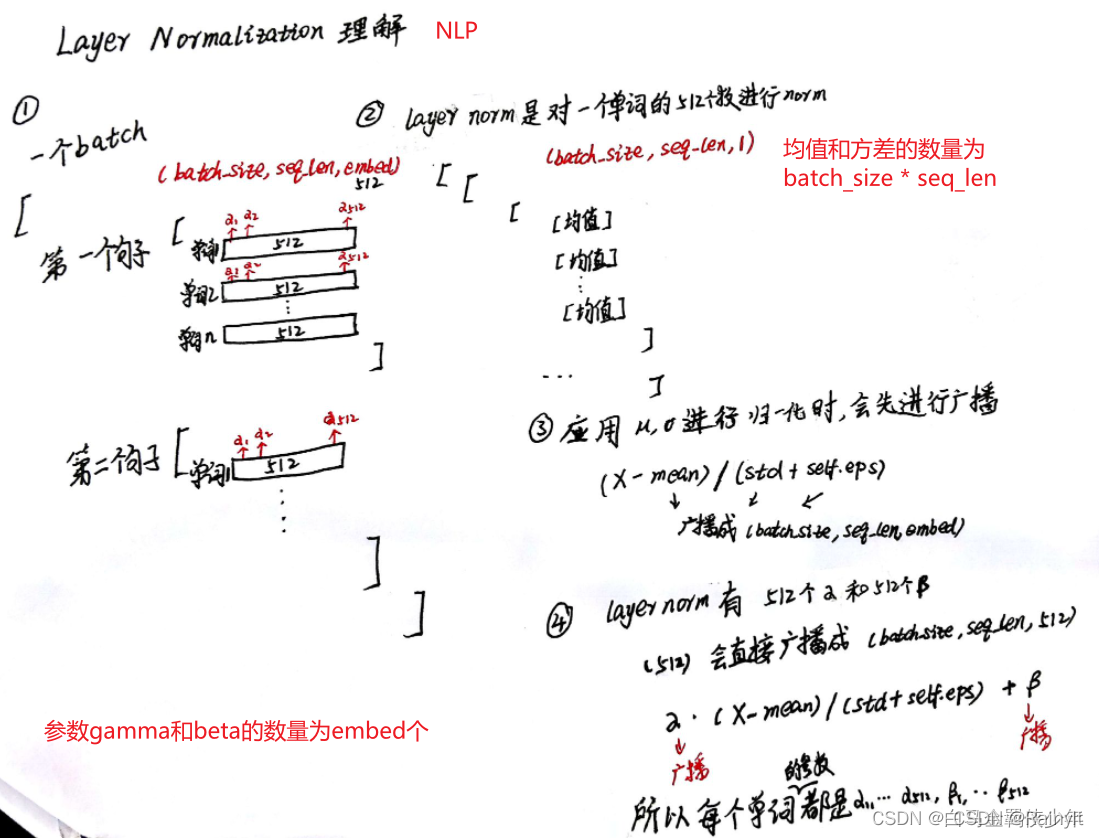 Layer Normalization 理解 NLP
①
一个batch
(batch_size, seq_len, embed)
512
[
第一个句子 [
α1 α2 α512
单词1 512
α1 α2 α512
单词2 512
⋮
单词n 512
]
第二个句子 [
α1 α2 α512
单词1 512
⋮
]
]
参数gamma和beta的数量为embed个
② layer norm是对一个单词的512个数进行norm
(batch_size, seq_len, 1)
均值和方差的数量为
batch_size * seq_len
[ [
[ [均值]
[均值]
⋮
[均值]
]
... ]
③ 应用 μ,σ 进行归一化时,会先进行广播
(X - mean) / (std + self.eps)
广播成 (batchsize, seq_len, embed)
④ layer norm 有 512个α和512个β
(512) 会直接广播成 (batchsize, seq_len, 512)
α · (X - mean) / (std + self.eps) + β
广播 广播
的参数
所以每个单词都是α1, ... α512, β1, ... β512